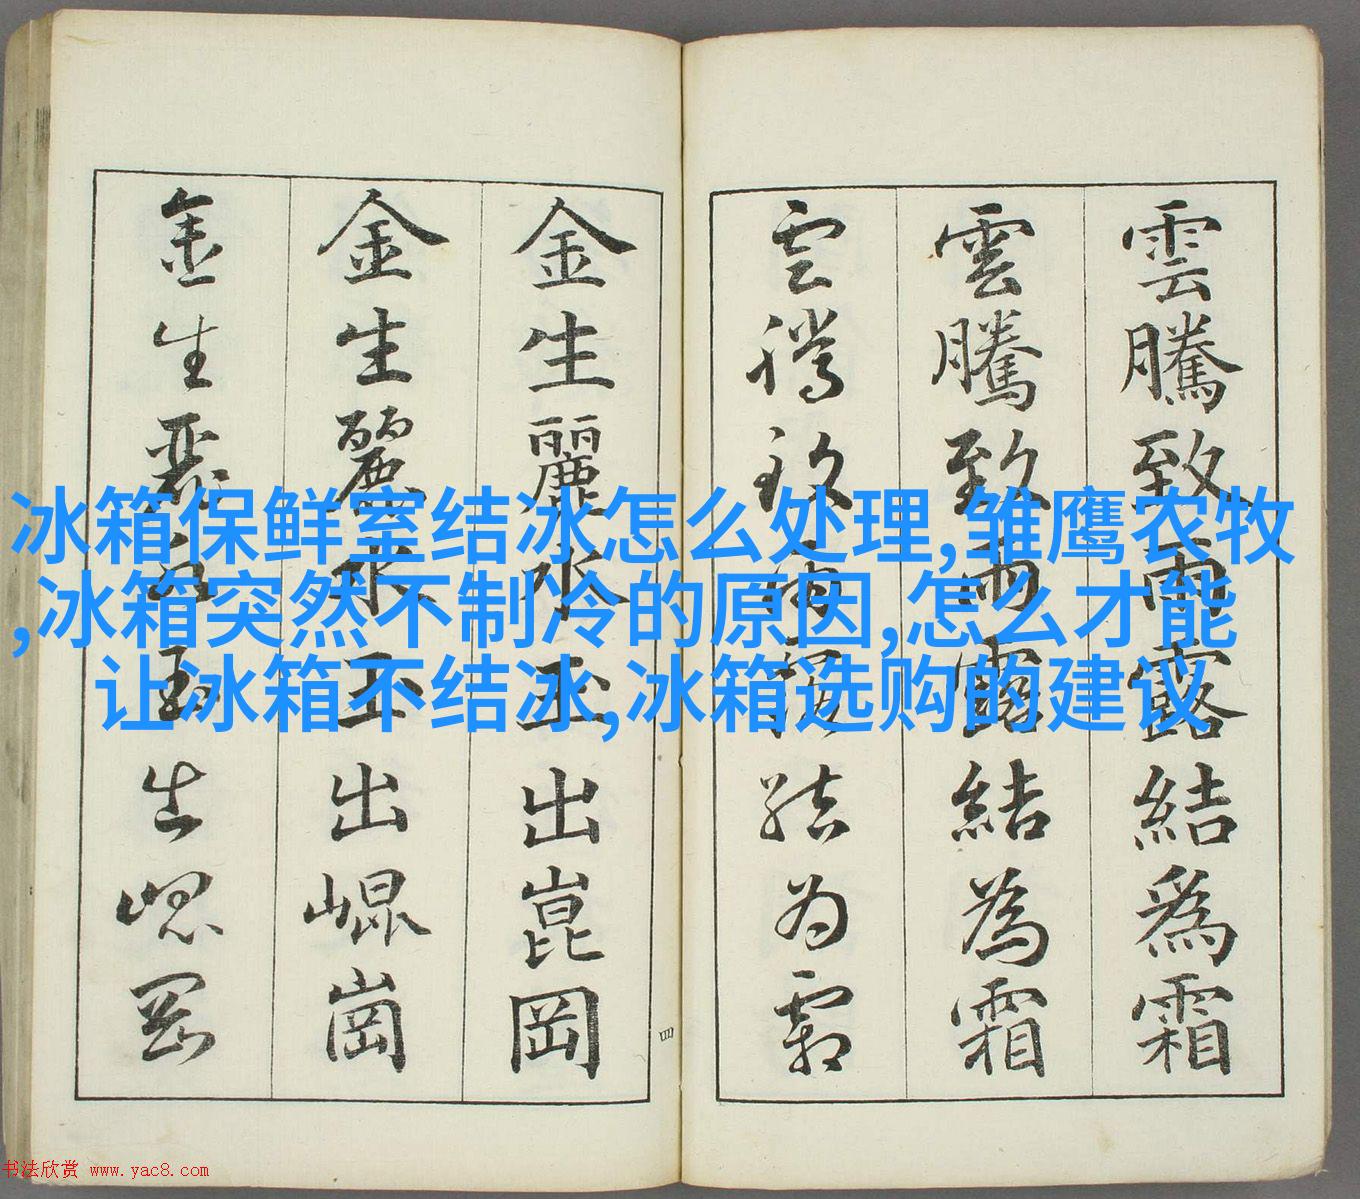 雲騰致雨露結為霜
雲騰致雨露結為霜
雲騰致雨露結为霜
金生麗水玉出崑岡
金生麗水玉出崐崗
金生麗水玉出崐岡
四
冰箱保鲜室结冰怎么处理,雏鹰农牧
,冰箱突然不制冷的原因,怎么才能
让冰箱不结冰,冰箱选购的建议
书法欣赏 www.yac8.com